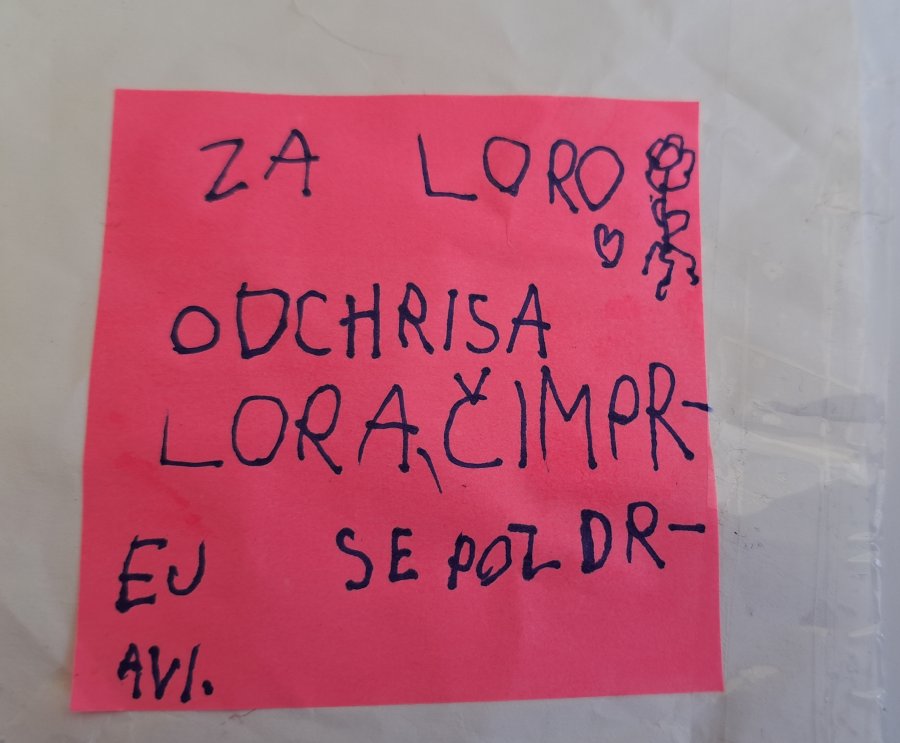 ZA LORO
ODCHRISA
LORA, ČIMPR-
EJ SE POZDR-
AVI.